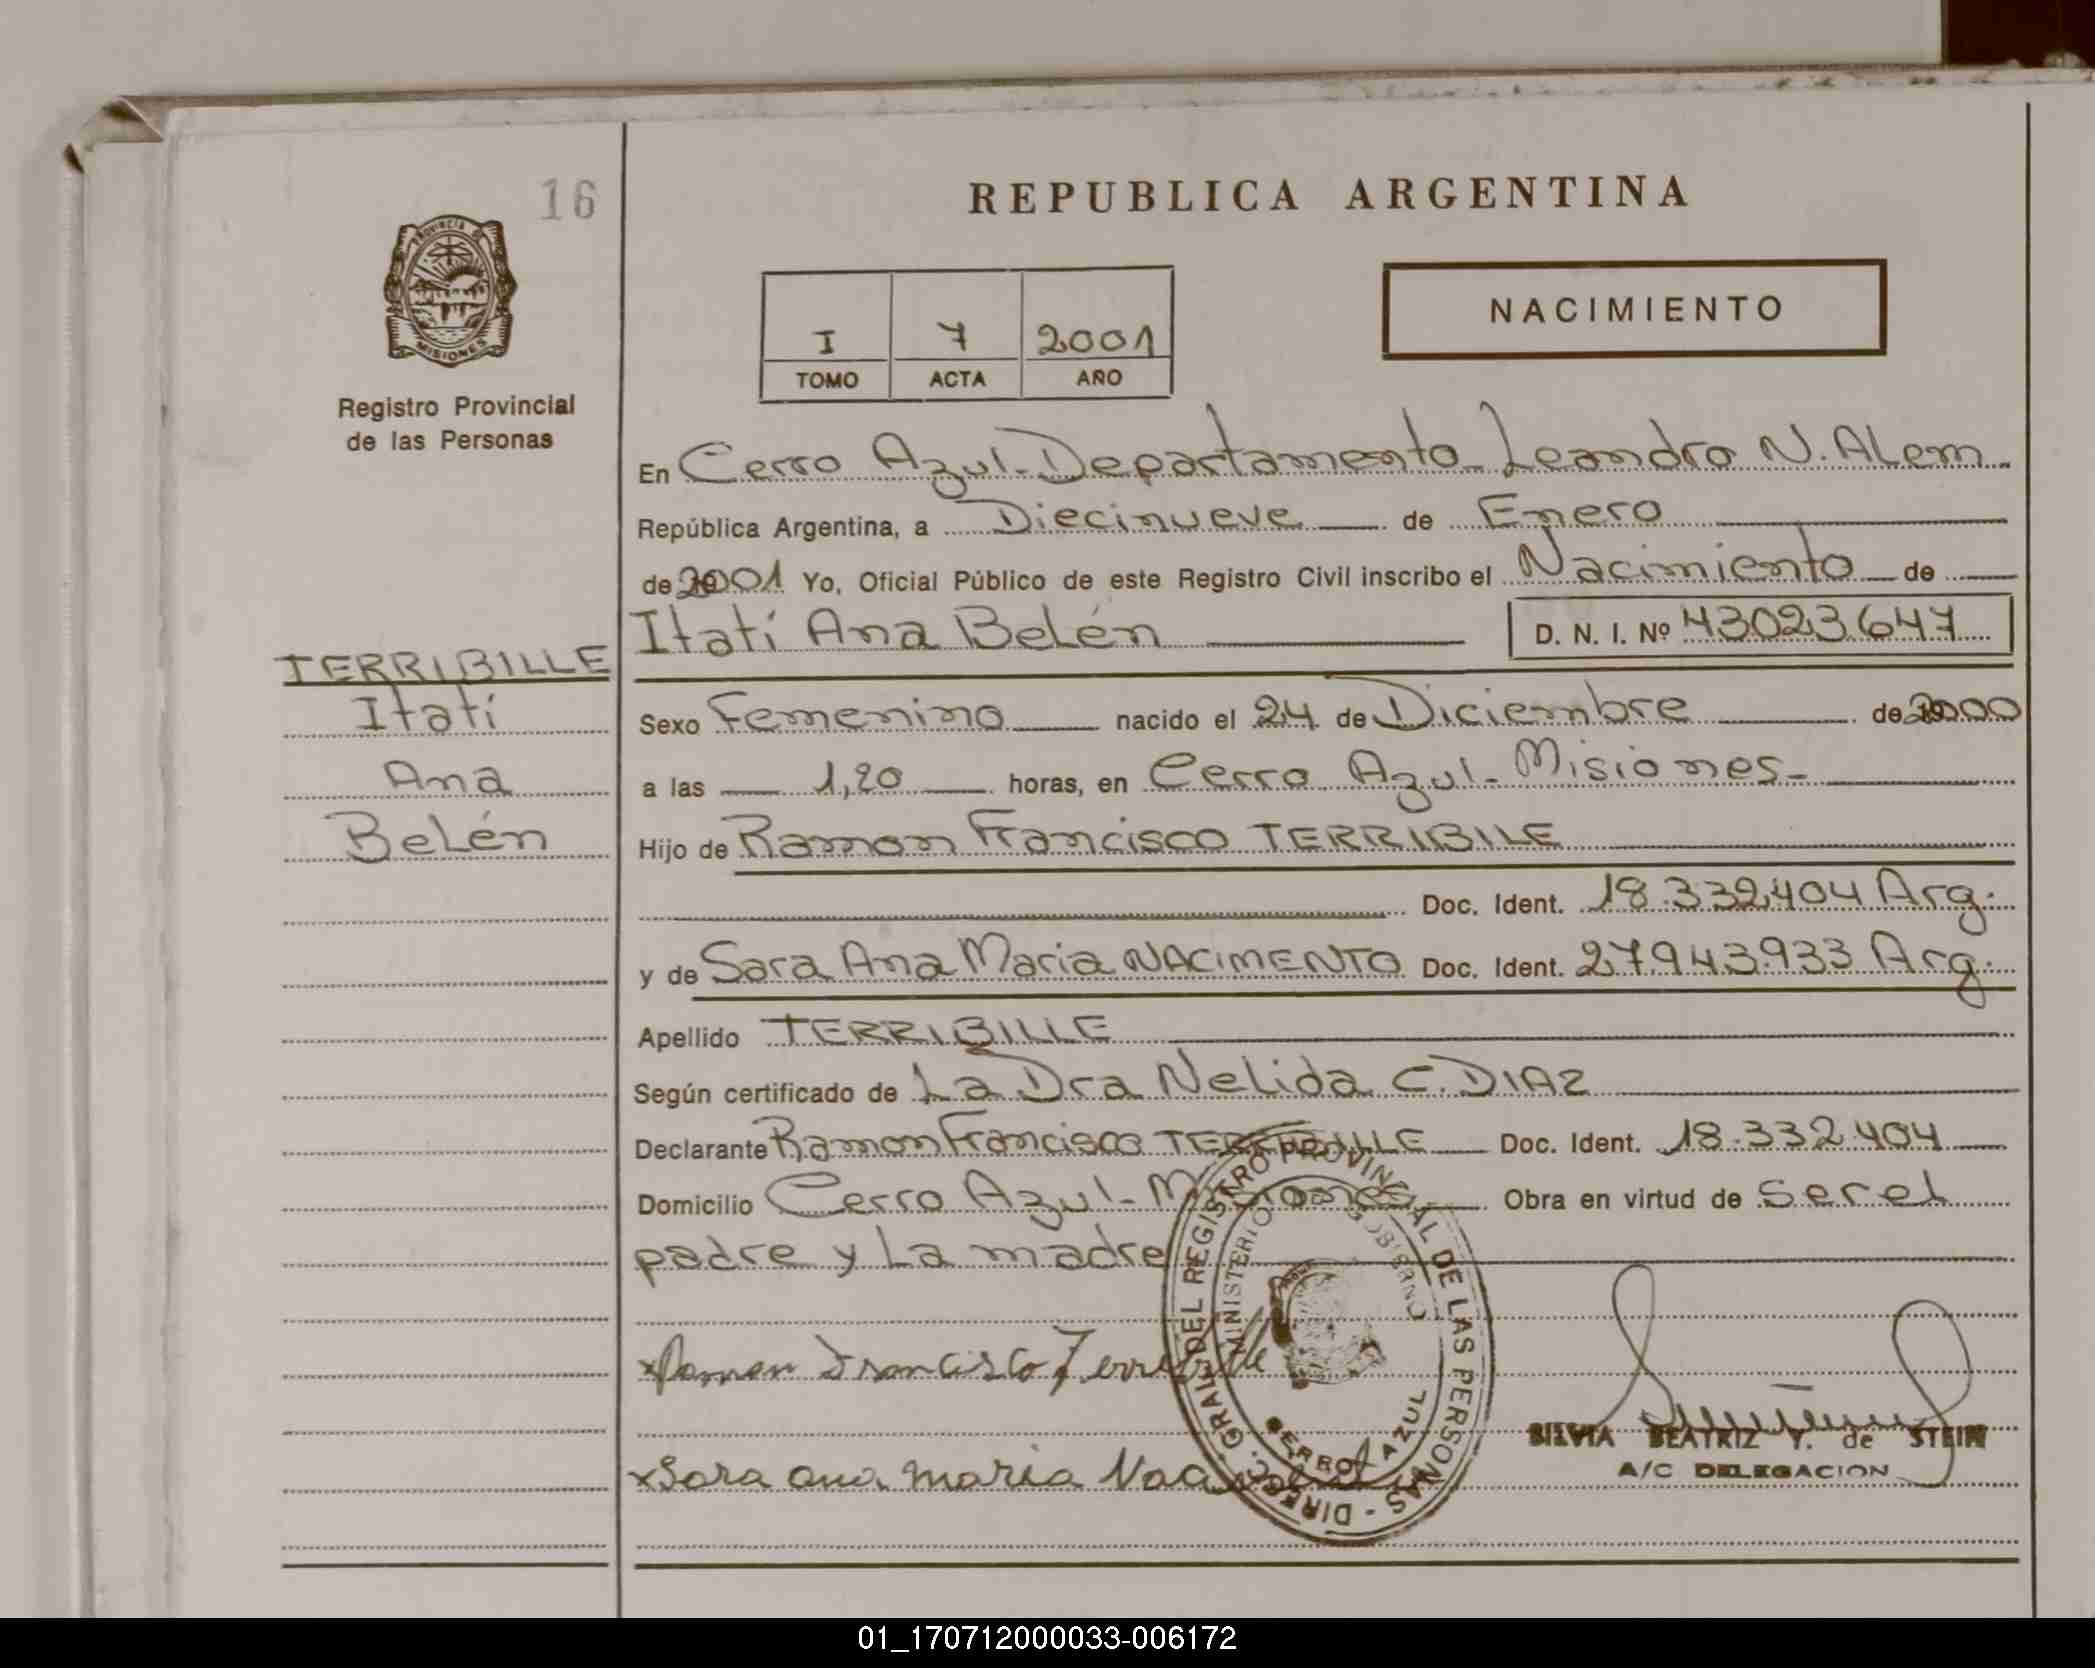 16
PROVINCIA DE
MISIONES
Registro Provincial
de las Personas
TERRIBILLE
Itatí
Ana
Belén
REPUBLICA ARGENTINA
I 7 2001
TOMO ACTA AÑO
NACIMIENTO
En Cerro Azul-Departamento Leandro N. ALem
República Argentina, a Diecinueve de Enero
de 2001 Yo, Oficial Público de este Registro Civil inscribo el Nacimiento de
Itatí Ana Belén D. N. I. Nº 43023647
Sexo Femenino nacido el 24 de Diciembre de 2000
a las 1,20 horas, en Cerro Azul-Misiones-
Hijo de Ramon Francisco TERRIBILE
Doc. Ident. 18.332.404 Arg.
y de Sara Ana Maria NACIMENTO Doc. Ident. 27943933 Arg.
Apellido TERRIBILLE
Según certificado de La Dra Nelida C. DIAZ
Declarante Ramon Francisco TERRIBILLE Doc. Ident. 18.332.404
Domicilio Cerro Azul-Misiones Obra en virtud de ser el
padre y La madre
DIREC. GRAL. DEL REGISTRO PROVINCIAL DE LAS PERSONAS -
MINISTERIO GOBIERNO
CERRO AZUL
x Ramon Francisco
x Sara ana maria
SILVIA BEATRIZ Y. de STEIN
A/C DELEGACION
01_170712000033-006172